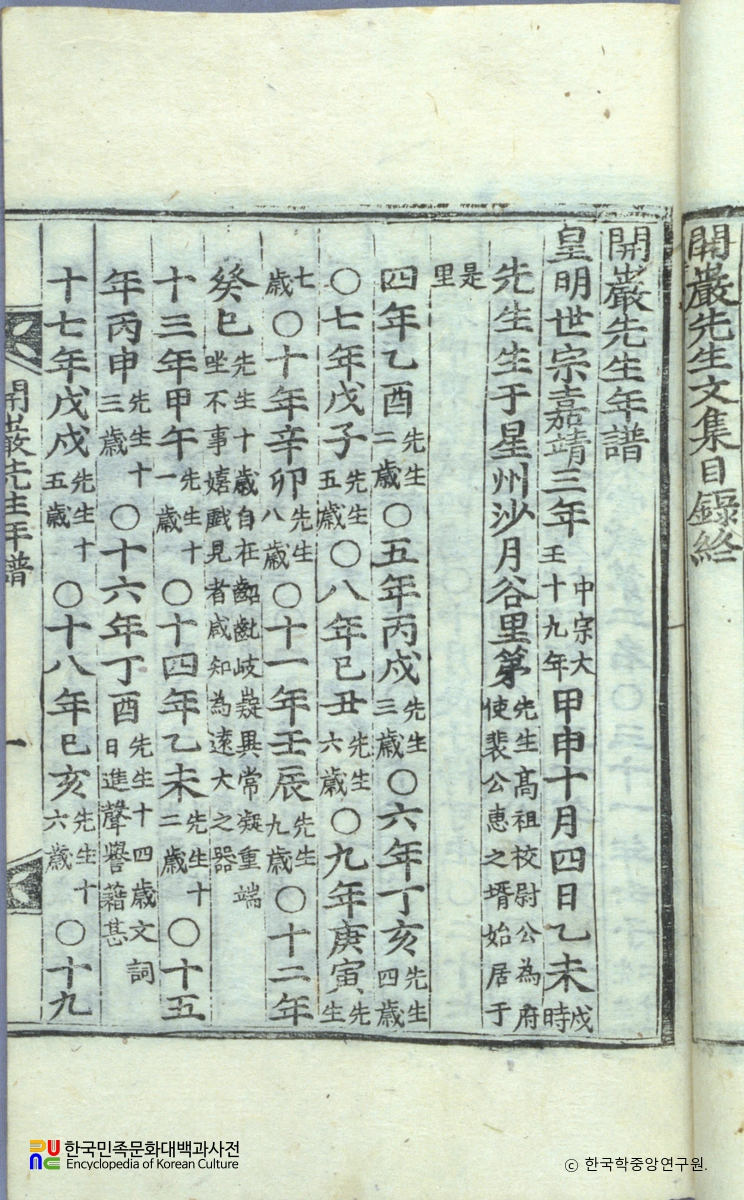 開巖先生文集目錄終
開巖先生年譜
皇明世宗嘉靖三年中宗大王十九年甲申十月四日乙未戌時
先生生于星州沙月谷里第先生高祖校尉公為府使裴公惠之壻始居于
是里
四年乙酉先生二歲○五年丙戌先生三歲○六年丁亥先生四歲
○七年戊子先生五歲○八年己丑先生六歲○九年庚寅先生
七歲○十年辛卯先生八歲○十一年壬辰先生九歲○十二年
癸巳先生十歲自在齠齔岐嶷異常凝重端坐不事嬉戱見者咸知為遠大之器
十三年甲午先生十一歲○十四年乙未先生十二歲○十五
年丙申先生十三歲○十六年丁酉先生十四歲文詞日進聲譽藉甚
十七年戊戌先生十五歲○十八年己亥先生十六歲○十九
開巖先生年譜 一
한국민족문화대백과사전
Encyclopedia of Korean Culture
© 한국학중앙연구원.